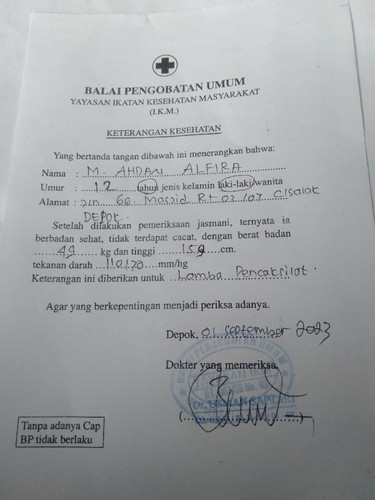 BALAI PENGOBATAN UMUM
YAYASAN IKATAN KESEHATAN MASYARAKAT
(I.K.M.)
KETERANGAN KESEHATAN
Yang bertanda tangan dibawah ini menerangkan bahwa:
Nama : M. AHDAN ALFIRA
Umur : 12 tahun jenis kelamin laki-laki/wanita
Alamat : Gg Masjid Rt 02/07 Cisalak
DEPOK
Setelah dilakukan pemeriksaan jasmani, ternyata ia
berbadan sehat, tidak terdapat cacat, dengan berat badan
49 kg dan tinggi 159 cm.
tekanan darah 110/70 mm/hg
Keterangan ini diberikan untuk Lomba Pencaksilat.
Agar yang berkepentingan menjadi periksa adanya.
Depok, 01 September 2023
Dokter yang memeriksa,
Tanpa adanya Cap
BP tidak berlaku